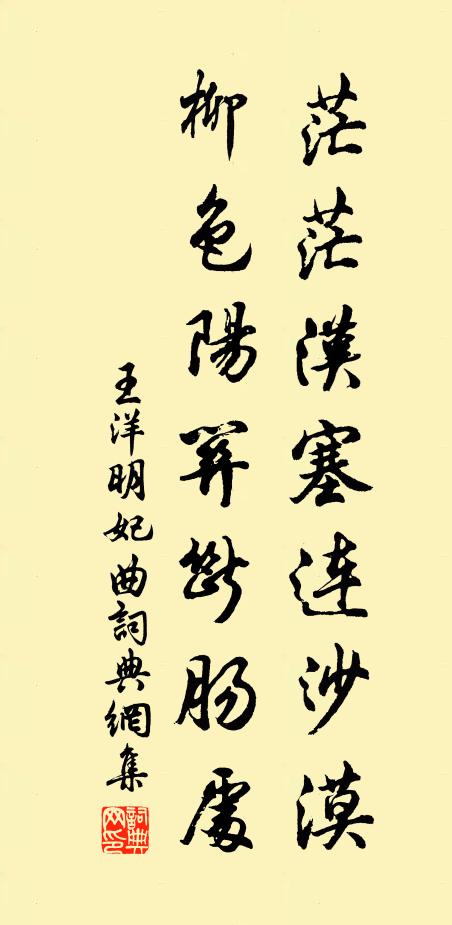 茫茫漢塞連沙漠
柳色陽關斷腸處
王洋明妃曲詞典網集
詞典网印